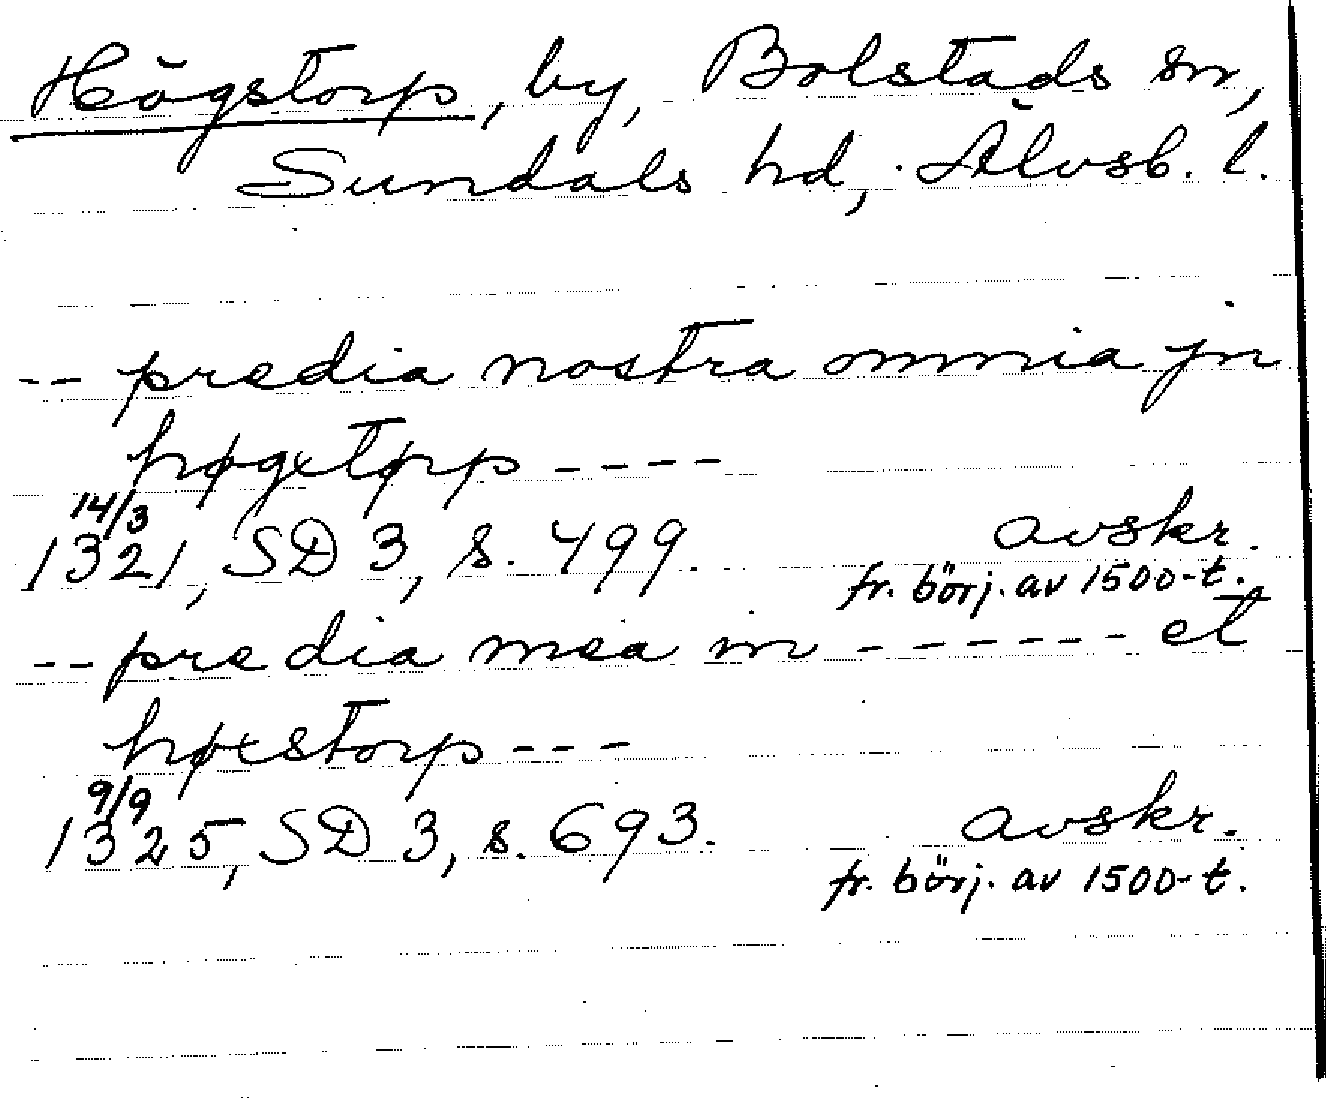 Högstorp, by, Bolstads sn,
Sundals hd, Älvsb. l.
-- predia nostra omnia jn
høgxtørp ----
14/3
1321, SD 3, s. 499. avskr.
fr. börj. av 1500-t.
-- predia mea in ------ et
høxstorp ---
9/9
1325, SD 3, s. 693. avskr.
fr. börj. av 1500-t.